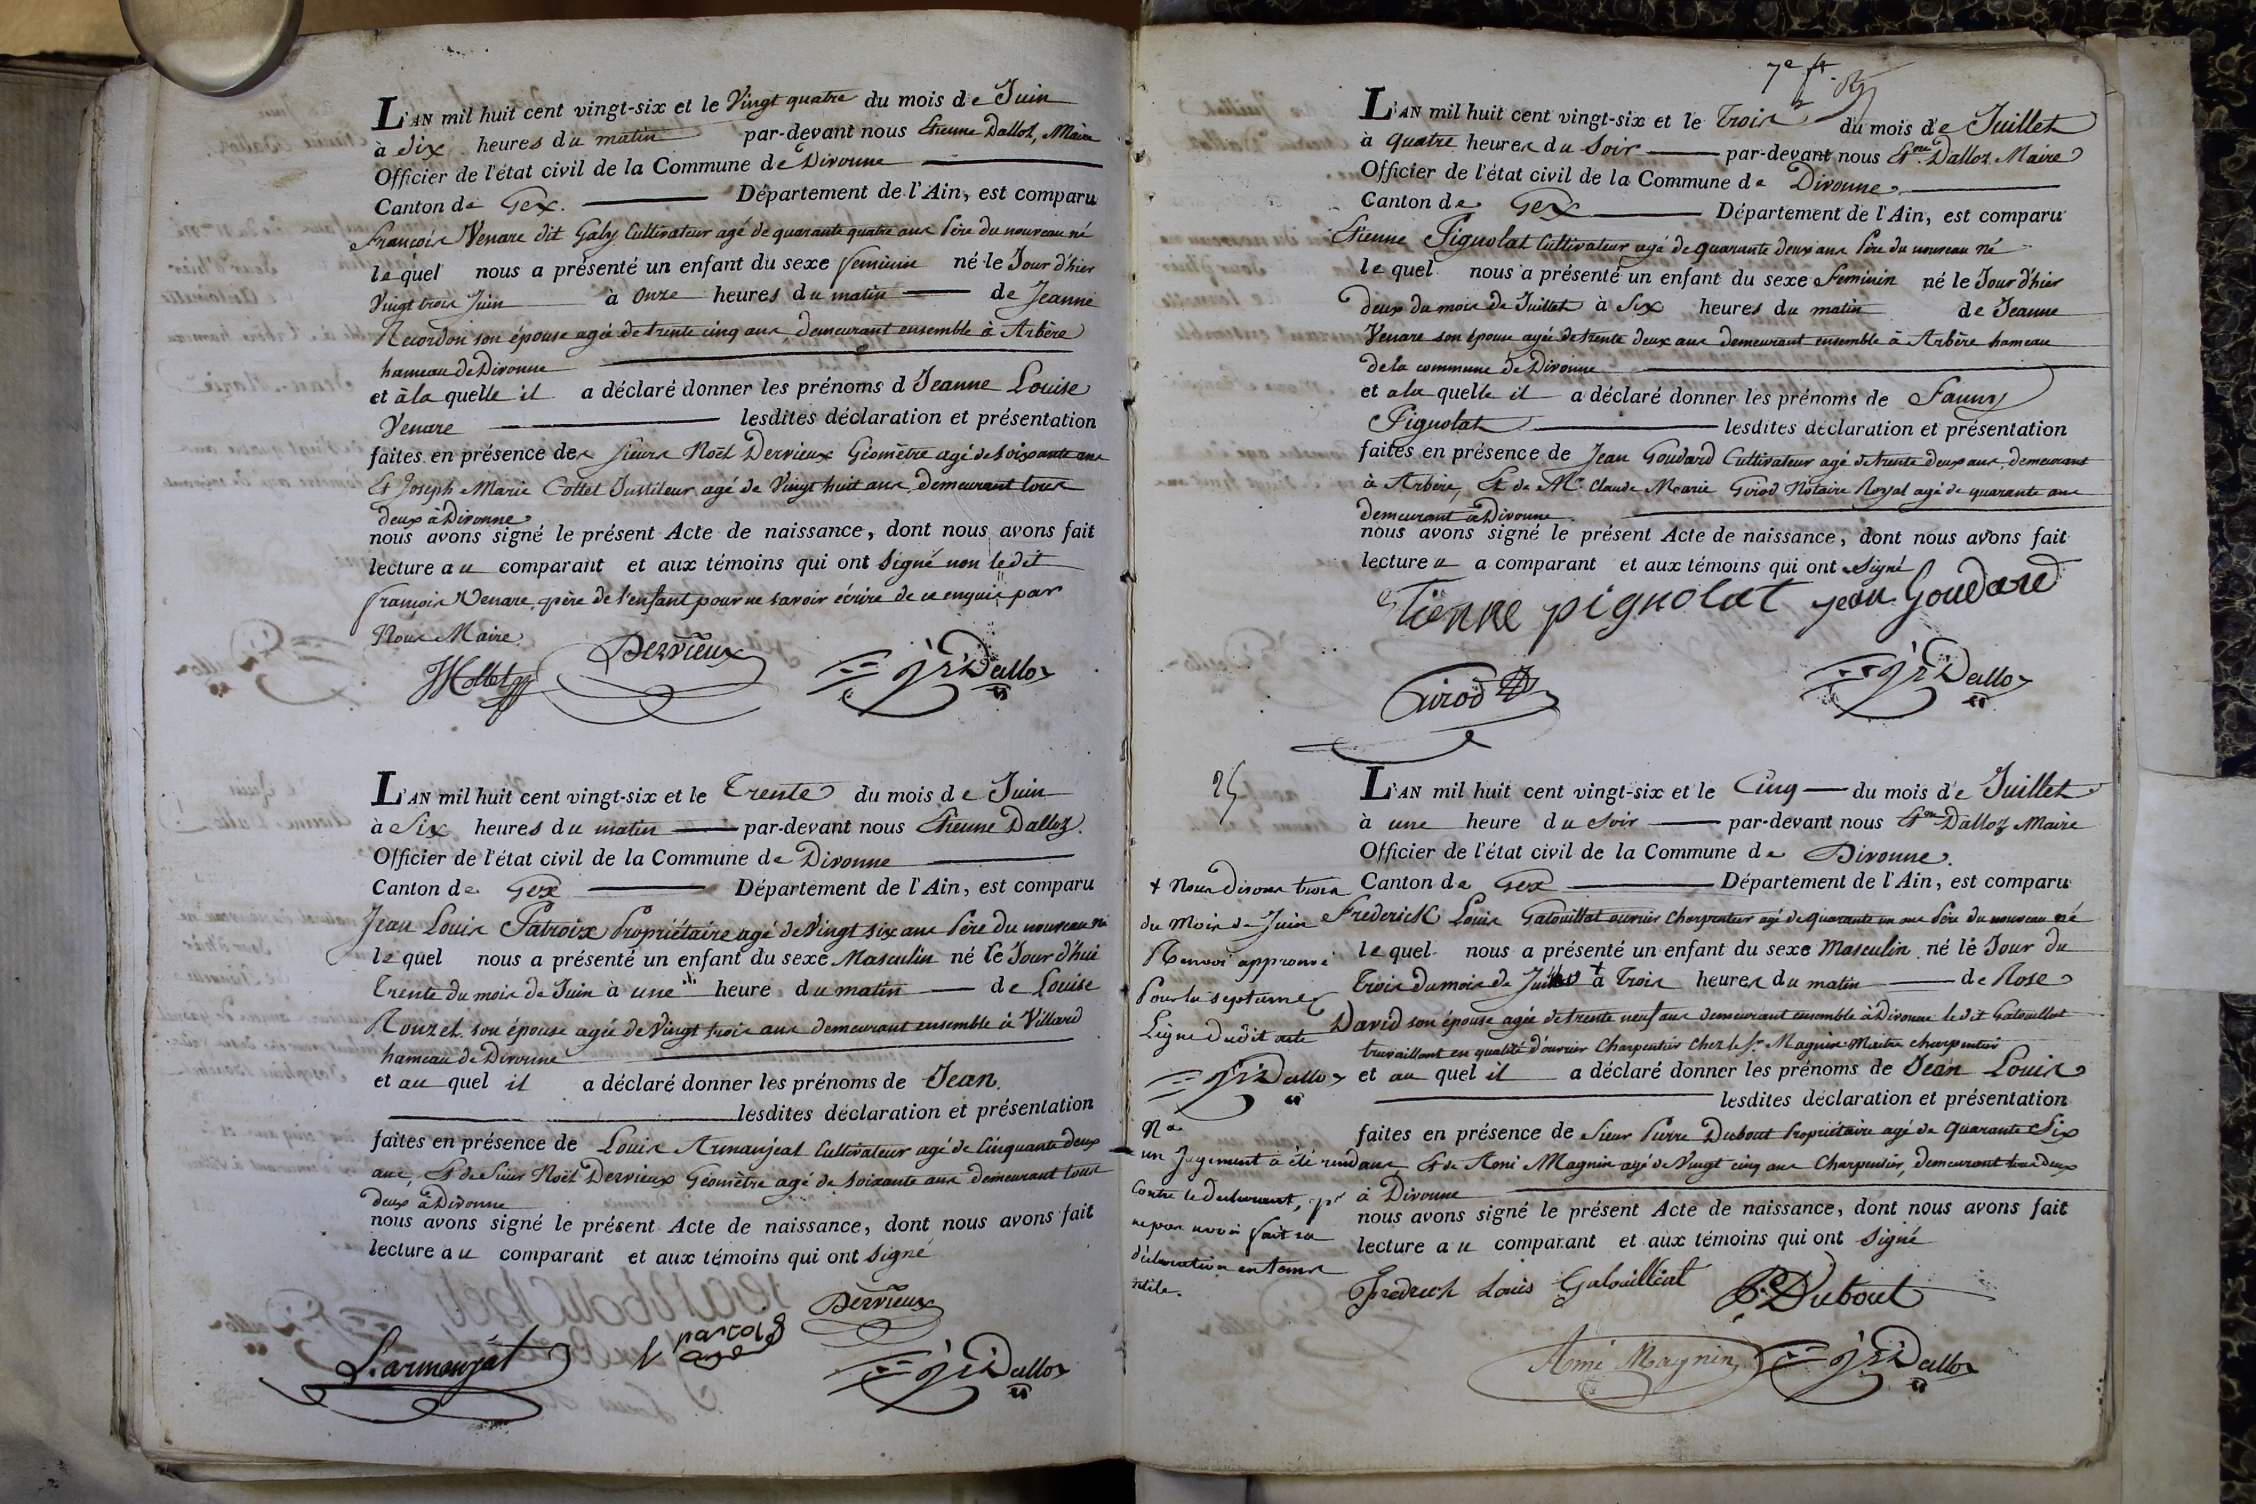 L'AN mil huit cent vingt-six et le Vingt quatre du mois de Juin
à Six heures du matin par-devant nous Etienne Dalloz, Maire
Officier de l'état civil de la Commune de Divonne
Canton de Gex. Département de l'Ain, est comparu
François Venare dit Gaby Cultivateur agé de quarante quatre ans Père du nouveau né
le quel nous a présenté un enfant du sexe feminin né le Jour d'hier
Vingt trois Juin à onze heures du matin de Jeanne
Recordon son épouse agée de trente cinq ans, demeurant ensemble à Arbère
hameau de Divonne
et à la quelle il a déclaré donner les prénoms d Jeanne Louise
Venare lesdites déclaration et présentation
faites en présence des sieurs Noël Dervieux Géomètre agé de soixante ans
Et Joseph Marie Collet Instituteur agé de Vingt huit ans, demeurant tous
deux à Divonne
nous avons signé le présent Acte de naissance, dont nous avons fait
lecture au comparant et aux témoins qui ont Signé non le dit
François Venare, père de l'enfant pour ne savoir écrire de ce enquis par
Nous Maire
Dervieux
JMCollet Dalloz
L'AN mil huit cent vingt-six et le Trente du mois de Juin
à Six heures du matin par-devant nous Etienne Dalloz.
Officier de l'état civil de la Commune de Divonne
Canton de Gex Département de l'Ain, est comparu
Jean Louis Patroix Propriétaire agé de Vingt six ans Père du nouveau né
le quel nous a présenté un enfant du sexe Masculin né le Jour d'hui
Trente du mois de Juin à une heure du matin de Louise
Rouzet son épouse agée de Vingt trois ans demeurant ensemble à Villard
hameau de Divonne
et au quel il a déclaré donner les prénoms de Jean.
lesdites déclaration et présentation
faites en présence de Louis Armanjeat Cultivateur agé de Cinquante deux
ans, Et de Sieur Noël Dervieux Géomètre agé de soixante ans demeurant tous
deux à Divonne
nous avons signé le présent Acte de naissance, dont nous avons fait
lecture au comparant et aux témoins qui ont Signé
Dervieux
L. armanjat Dalloz
7e ft
L'AN mil huit cent vingt-six et le Trois du mois de Juillet
à quatre heures du Soir par-devant nous Etne Dalloz Maire
Officier de l'état civil de la Commune de Divonne
Canton de Gex Département de l'Ain, est comparu
Etienne Pignolat Cultivateur agé de quarante deux ans Père du nouveau né
le quel nous a présenté un enfant du sexe Feminin né le Jour d'hier
deux du mois de Juillet à Six heures du matin de Jeanne
Venare son épouse agée de trente deux ans demeurant ensemble à Arbère hameau
de la commune de Divonne
et a la quelle il a déclaré donner les prénoms de Fanny
Pignolat lesdites déclaration et présentation
faites en présence de Jean Goudard Cultivateur agé de trente deux ans, demeurant
à Arbère, Et de Mr Claude Marie Girod Notaire Royal agé de quarante ans
demeurant à Divonne.
nous avons signé le présent Acte de naissance, dont nous avons fait
lecture u a comparant et aux témoins qui ont Signé
etienne pignolat jean Goudard
Girod Dalloz
25
L'AN mil huit cent vingt-six et le Cinq du mois de Juillet
à une heure du Soir par-devant nous Etne Dalloz Maire
Officier de l'état civil de la Commune de Divonne.
Canton de Gex Département de l'Ain, est comparu
Frederick Louis Galouillat ouvrier Charpentier agé de quarante un ans Père du nouveau né
le quel nous a présenté un enfant du sexe Masculin né le Jour du
Trois du mois de Juillet + à Trois heures du matin de Rose
David son épouse agée de trente neuf ans demeurant ensemble à Divonne le dit Galouillat
travaillant en qualité d'ouvrier Charpentier chez le Sr Magnin Maitre charpentier
et au quel il a déclaré donner les prénoms de Jean Louis
lesdites déclaration et présentation
faites en présence de Sieur Pierre Dubout Propriétaire agé de quarante Six
ans, Et de Ami Magnin agé de Vingt cinq ans Charpentier, demeurant tous deux
à Divonne
nous avons signé le présent Acte de naissance, dont nous avons fait
lecture au comparant et aux témoins qui ont Signé
Fredrick Louis Galouilliat PDubout
Ami Magnin Dalloz
+ Nous disons trois
du Mois de Juin
Renvoi approuvé
Pour la septieme
Ligne dudit acte
Dalloz
Na
un Jugement a été rendu
Contre le declarant, pr
ne pas avoir fait sa
déclaration en tems
utile.